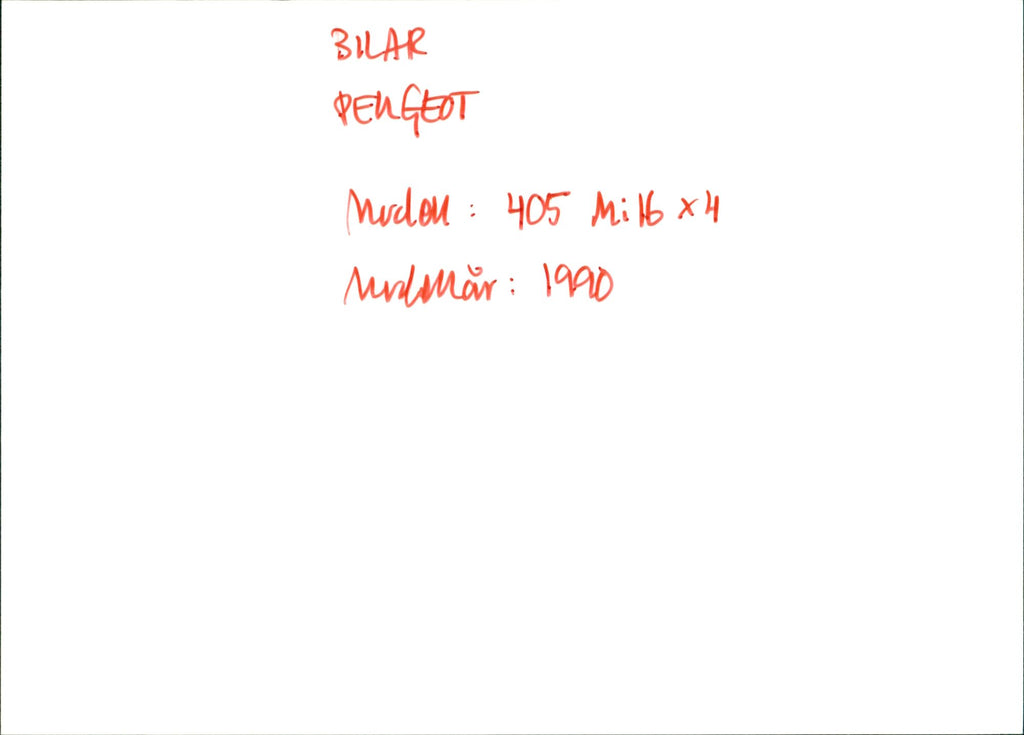 BILAR
PEUGEOT
Modell: 405 Mi16 x4
Modellår: 1990